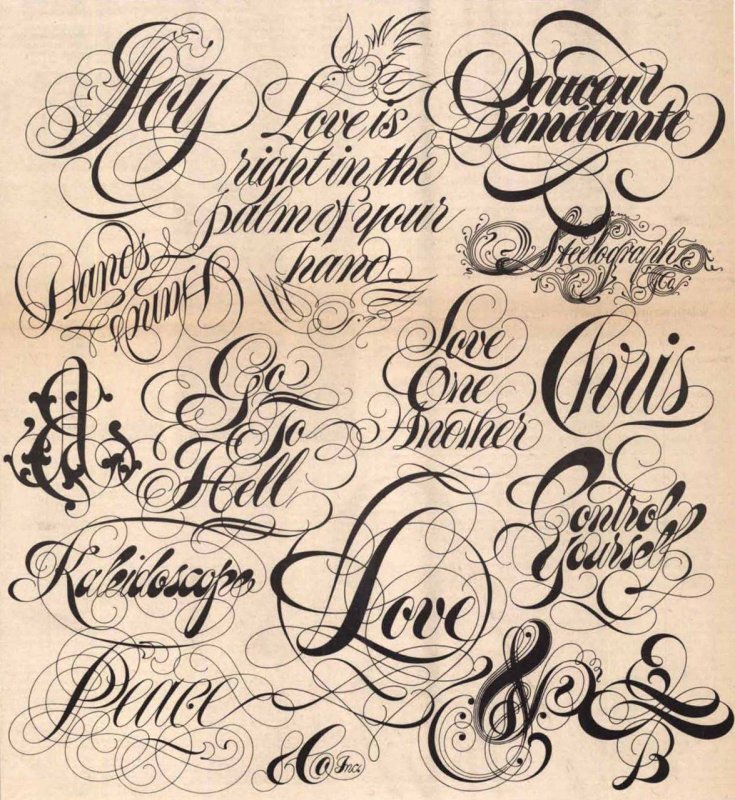 Joy
Love is
right in the
palm of your
hand
Douceur
Démêlante
Hands
Steelograph
Co
Love
One
Another
Chris
Go
To
Hell
Control
Yourself
Kaleidoscope
Love
Peace
&
& Co Inc.
B